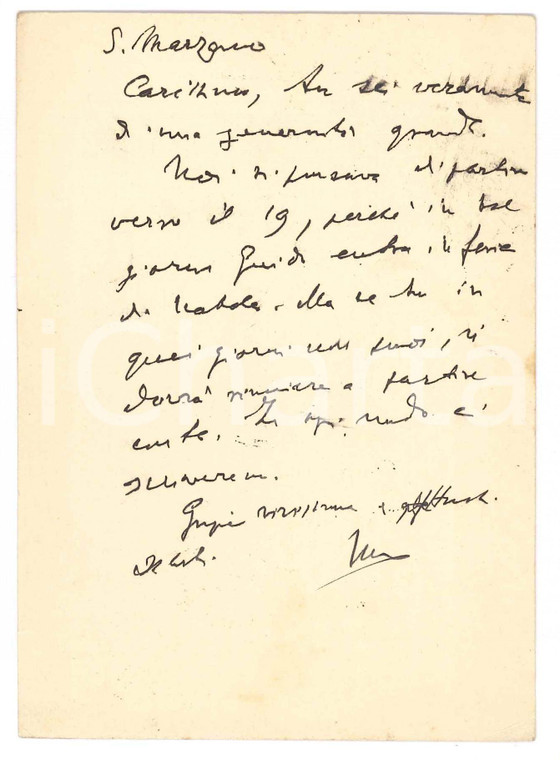 S. Marzano
Carissimo, tu sei veramente
d'una generosità grande.
Noi si pensava di partire
verso il 19, perché in tal
giorno Guido entra in ferie
di Natale. Ma se tu in
quei giorni non puoi, si
dovrà rinunciare a partire
con te. In ogni modo ci
scriveremo.
Grazie vivissime e
saluti.
iCharta